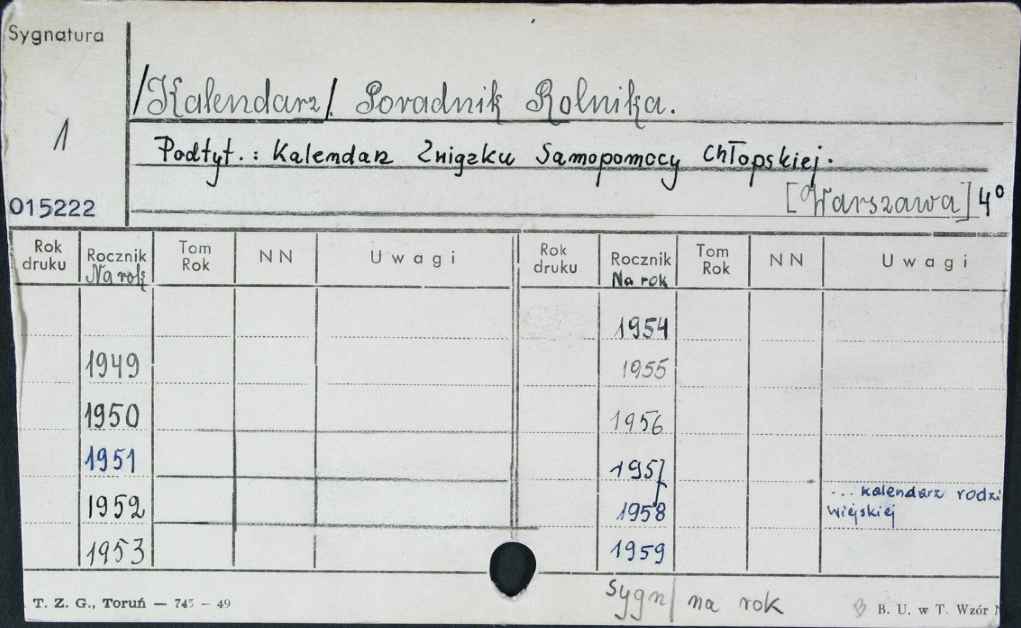 Sygnatura
/Kalendarz/. Poradnik Rolnika.
1
Podtyt.: Kalendarz Związku Samopomocy Chłopskiej.
[Warszawa] 4°
015222
Rok druku Rocznik Na rok Tom Rok NN Uwagi Rok druku Rocznik Na rok Tom Rok NN Uwagi
1954
1949 1955
1950 1956
1951 1957
1952 1958 ... kalendarz rodzi
wiejskiej
1953 1959
Sygn/ na rok
T. Z. G., Toruń — 745 — 49 B. U. w T. Wzór